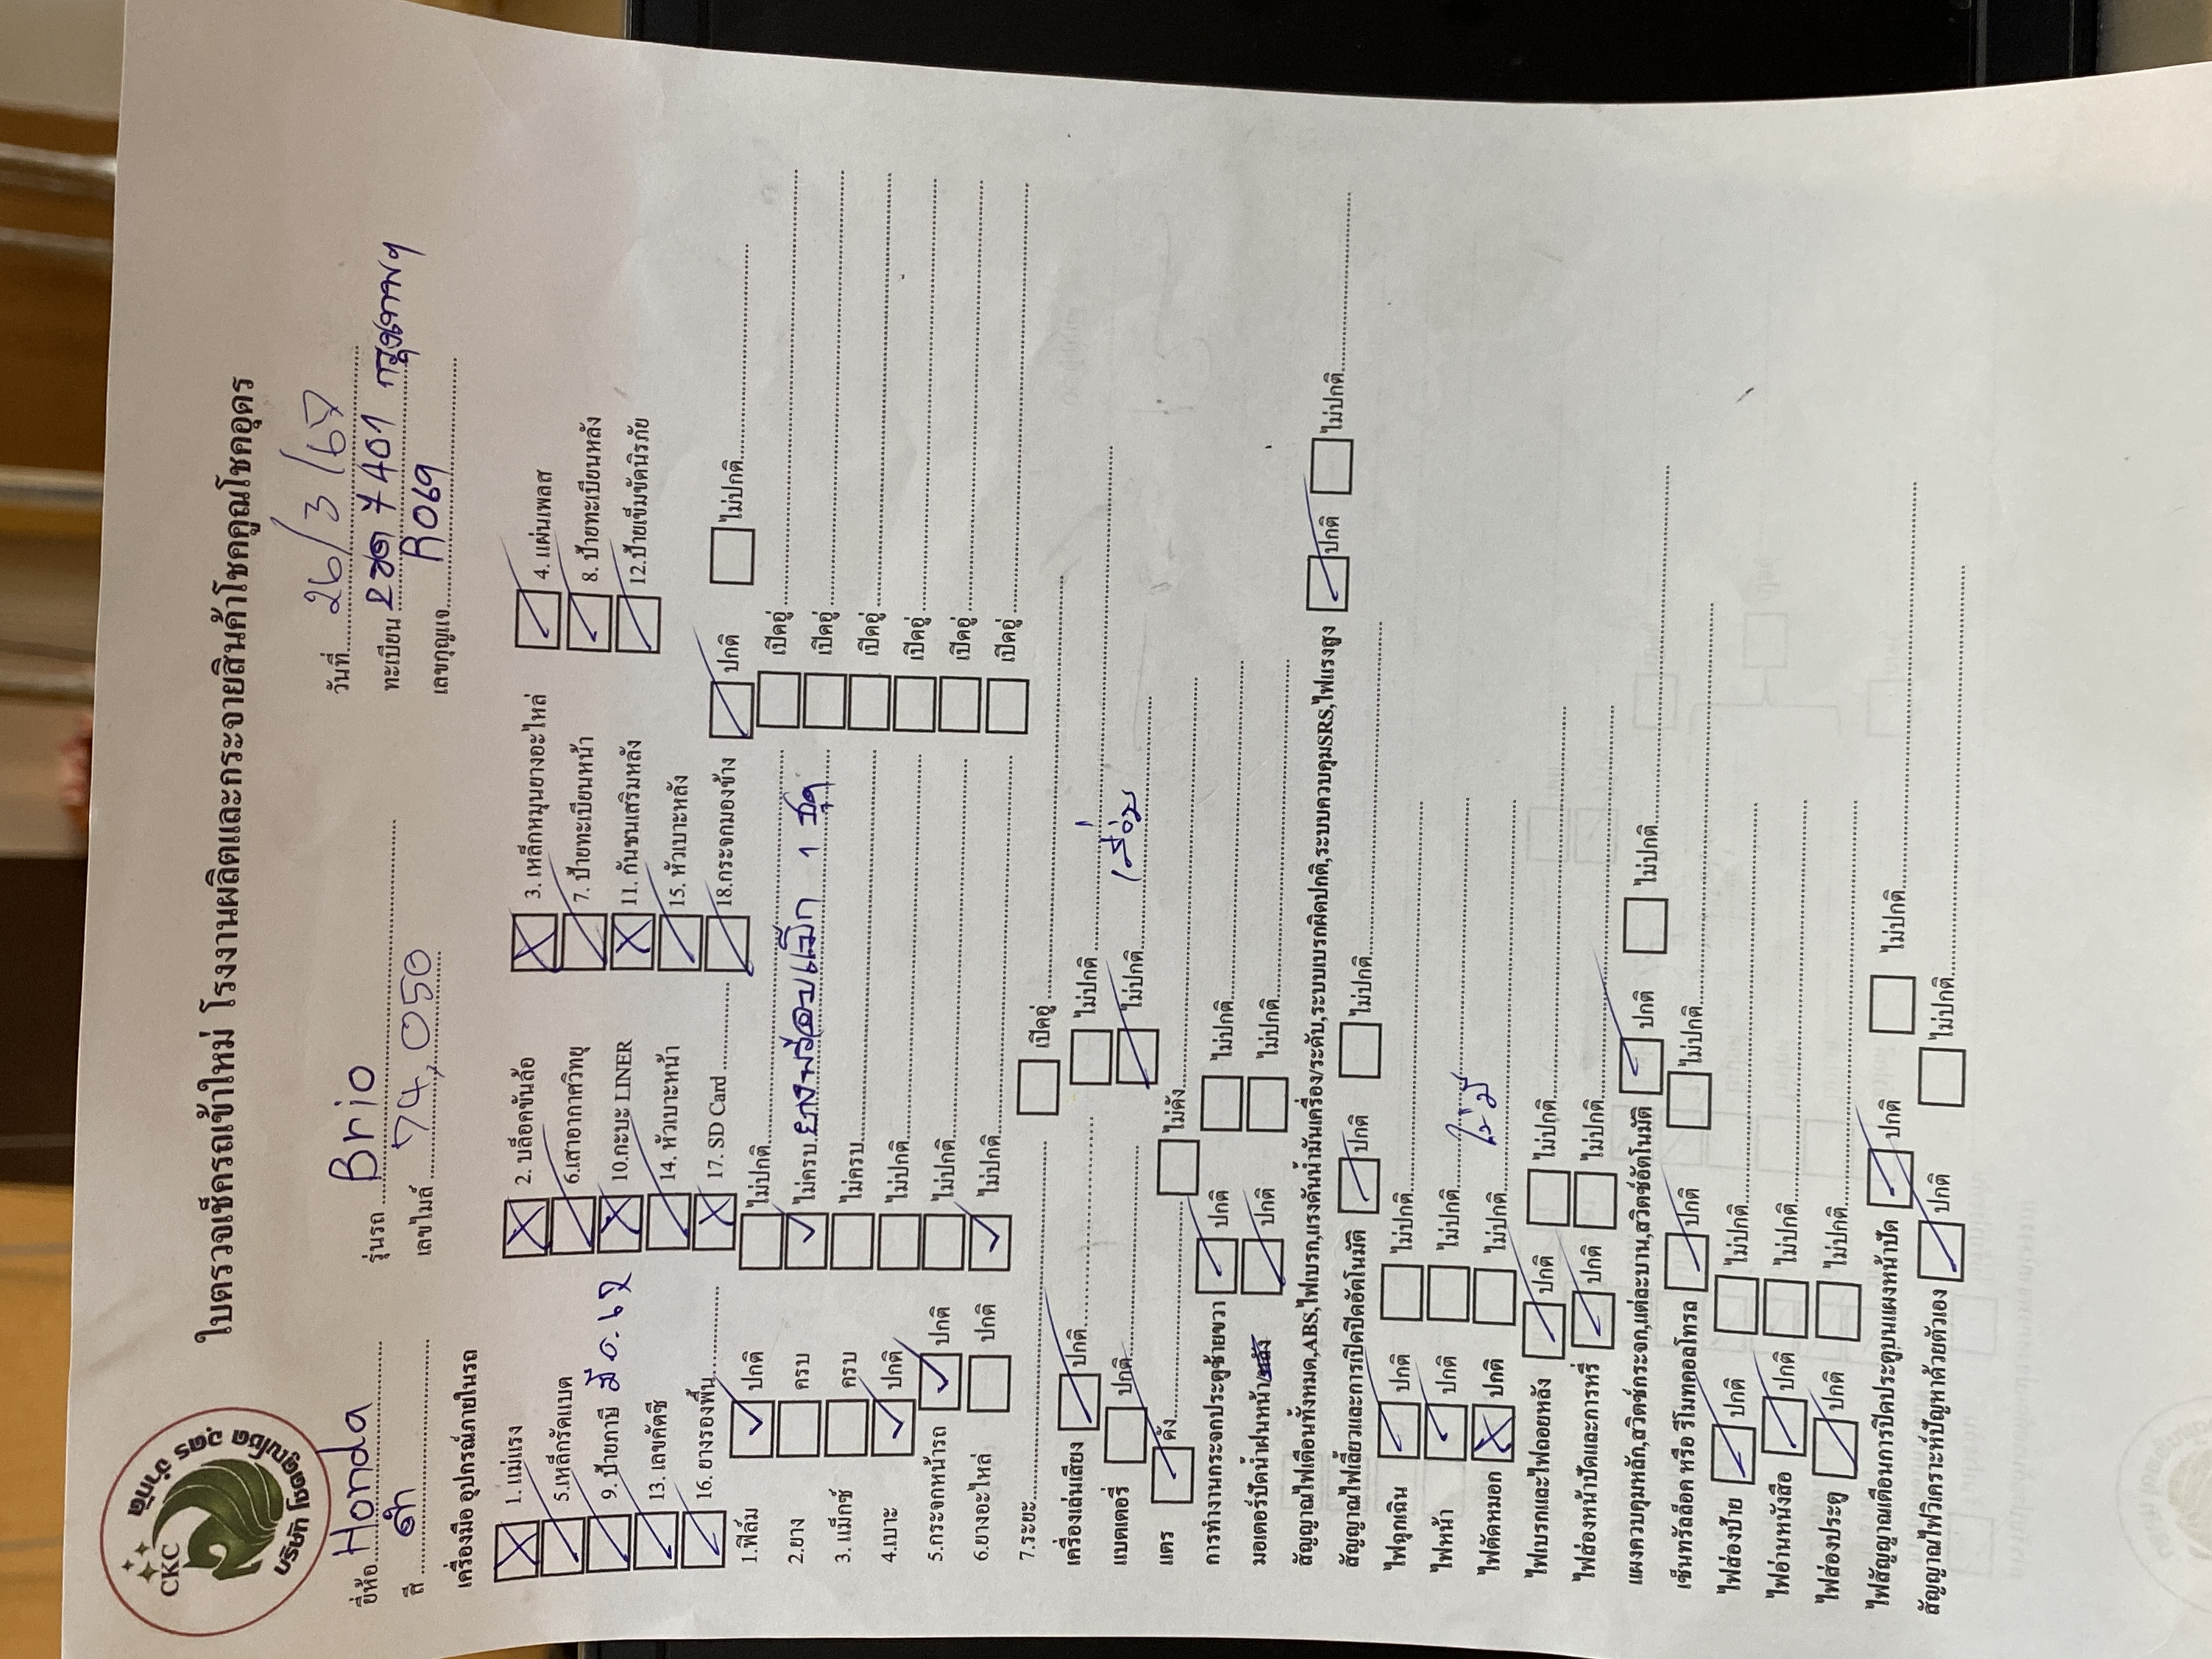 CKC
บริษัท โชคคูณโชค อุดร จำกัด
ใบตรวจเช็ครถเข้าใหม่ โรงงานผลิตและกระจายสินค้าโชคคูณโชคอุดร
วันที่ 26/3/67
ยี่ห้อ Honda รุ่นรถ Brio ทะเบียน 2ฆต 7401 กรุงเทพฯ
สี ดำ เลขไมล์ 74,050 เลขกุญแจ R069
เครื่องมือ อุปกรณ์ภายในรถ
1. แม่แรง 2. บล็อคขันล้อ 3. เหล็กหมุนยางอะไหล่ 4. แผ่นเพลส
5.เหล็กรัดแบต 6.เสาอากาศวิทยุ 7. ป้ายทะเบียนหน้า 8. ป้ายทะเบียนหลัง
9. ป้ายภาษี 10.กะบะ LINER 11. กันชนเสริมหลัง 12.ป้ายเข็มขัดนิรภัย
13. เลขคัดซี 14. หัวเบาะหน้า 15. หัวเบาะหลัง
16. ยางรองพื้น 17. SD Card 18.กระจกมองข้าง ปกติ ไม่ปกติ
1.ฟิล์ม ปกติ ไม่ปกติ เบิคอยู่
2.ยาง ครบ ไม่ครบ ยางพร้อมแม็ก 1 ชุด เบิคอยู่
3. แม็กซ์ ครบ ไม่ครบ เบิคอยู่
4.เบาะ ปกติ ไม่ปกติ เบิคอยู่
5.กระจกหน้ารถ ปกติ ไม่ปกติ เบิคอยู่
6.ยางอะไหล่ ปกติ ไม่ปกติ เบิคอยู่
7.ระยะ เบิคอยู่
เครื่องเล่นเสียง ปกติ ไม่ปกติ
แบตเตอรี่ ปกติ ไม่ปกติ เสื่อม
แตร ดัง ไม่ดัง
การทำงานกระจกประตูซ้ายขวา ปกติ ไม่ปกติ
มอเตอร์ปัดน้ำฝนหน้า ปกติ ไม่ปกติ
สัญญาณไฟเตือนทั้งหมด,ABS,ไฟเบรก,แรงดันน้ำมันเครื่อง/ระดับ,ระบบเบรกผิดปกติ,ระบบควบคุมSRS,ไฟแรงสูง ปกติ ไม่ปกติ
สัญญาณไฟเลี้ยวและการเปิดปิดอัตโนมัติ ปกติ ไม่ปกติ
ไฟฉุกเฉิน ปกติ ไม่ปกติ
ไฟหน้า ปกติ ไม่ปกติ
ไฟตัดหมอก ปกติ ไม่ปกติ ไม่มี
ไฟเบรกและไฟถอยหลัง ปกติ ไม่ปกติ
ไฟส่องหน้าปัดและการหรี่ ปกติ ไม่ปกติ
แผงควบคุมหลัก,สวิตช์กระจก,แต่ละบาน,สวิตช์อัตโนมัติ ปกติ ไม่ปกติ
เซ็นทรัลล็อค หรือ รีโมทคอลโทรล ปกติ ไม่ปกติ
ไฟส่องป้าย ปกติ ไม่ปกติ
ไฟอ่านหนังสือ ปกติ ไม่ปกติ
ไฟส่องประตู ปกติ ไม่ปกติ
ไฟสัญญาณเตือนการปิดประตูบนแผงหน้าปัด ปกติ ไม่ปกติ
สัญญาณไฟวิเคราะห์ปัญหาด้วยตัวเอง ปกติ ไม่ปกติ